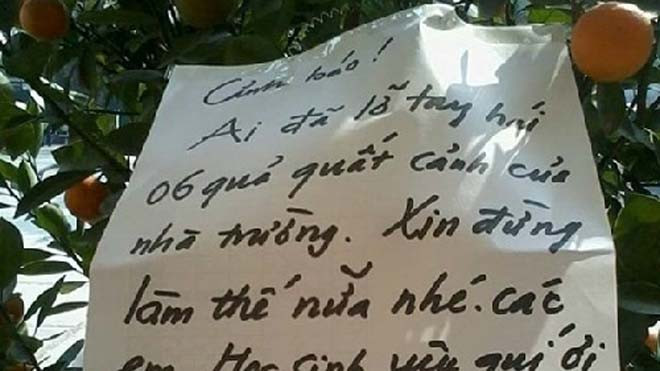 Cảnh báo!
Ai đã lỡ tay hái
06 quả quất cảnh của
nhà trường. Xin đừng
làm thế nữa nhé. Các
em Học sinh yêu quí ơi